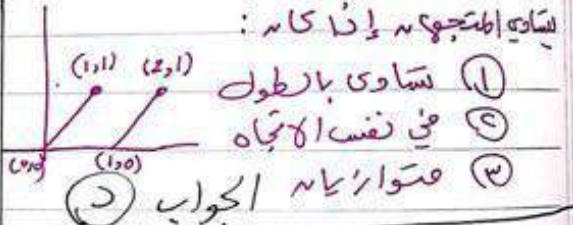 يتساوى المتجهان إذا كان :
① تساوى بالطول
② في نفس الاتجاه
③ متوازيان
الجواب د
(1,1) (2,1)
(0,0) (1,0)